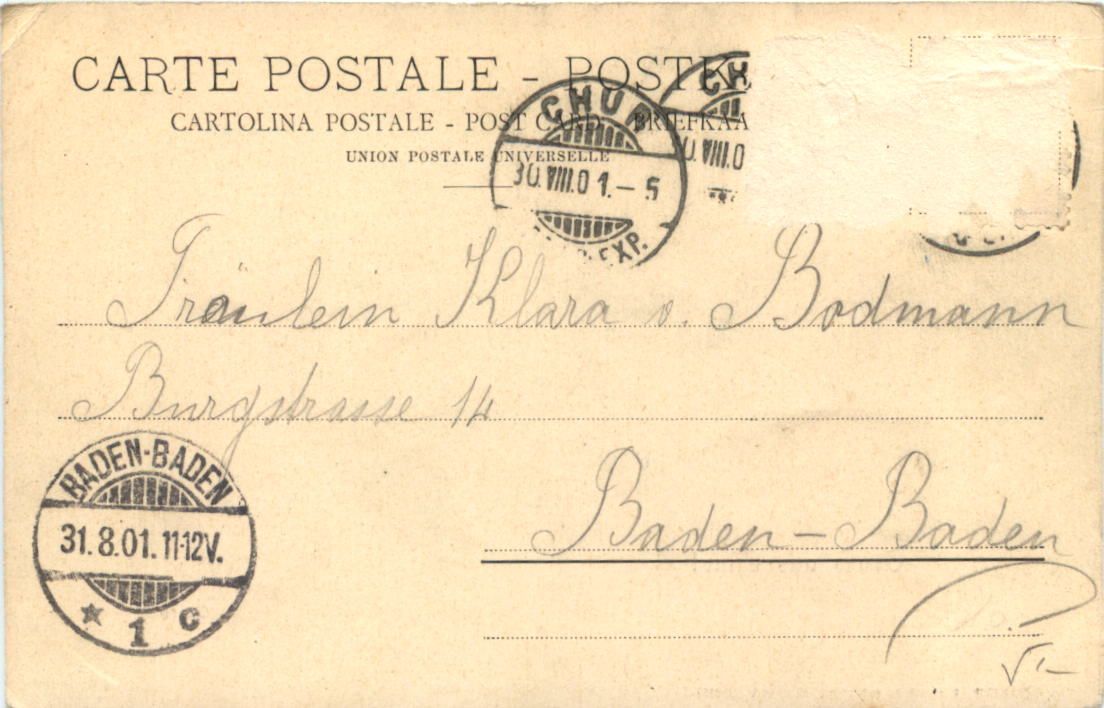 CARTE POSTALE - POSTK
CARTOLINA POSTALE - POST CARD - BRIEFKAA
UNION POSTALE UNIVERSELLE
CHUR
30.VIII.01.-5
EXP.
CH
0.VIII.0
Fräulein Klara v. Bodmann
Burgstrasse 14
Baden-Baden
BADEN-BADEN
31.8.01.11-12V.
* 1 c